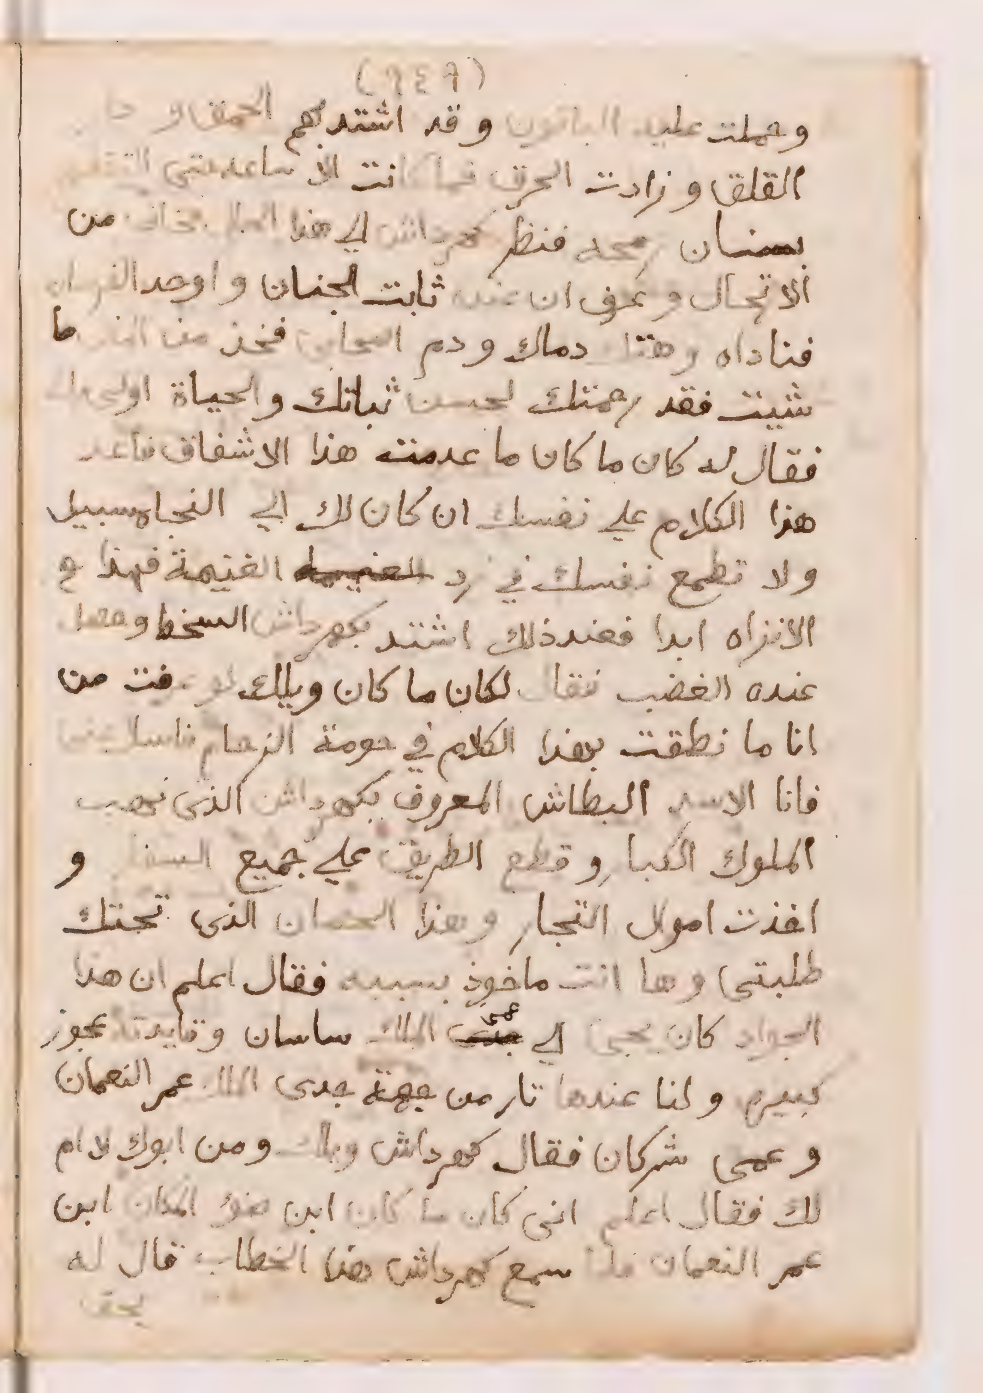 (٩٤٩)
وحملت عليه الباقون وقد اشتد بهم الحمق و
القلق وزادت الحرق فما كانت الا ساعه حتى
بسنان رمحه فنظر كهرداش الي هذا الحال فخاف من
الاتحال وعرف ان عنده ثابت الجنان واوحد الفرسان
فناداه وهبتك دماك ودم اصحابك فخذ من المال ما
شيت فقد رحمتك لحسن ثباتك والحياة اولى بك
فقال له كان ما كان ما عدمت هذا الاشفاق فاعد
هذا الكلام علي نفسك ان كان لك الي النجاه سبيل
ولا تطمع نفسك في رد الغنيمة فهذا
ابدا فعند ذلك اشتد بكهرداش السخط وحصل
عنده الغضب فقال لكان ما كان ويلك لو عرفت من
انا ما نطقت بهذا الكلام في حومة الزحام فاسال عني
فانا الاسد البطاش المعروف بكهرداش الذى نهب
الملوك الكبار وقطع الطريق علي جميع السفار و
اخذت اموال التجار وهذا الحصان الذى تحتك
طلبتى وها انت ماخوذ بسببه فقال اعلم ان هذا
الجواد كان يجى الي عمى الملك ساسان وقايدته عجوز
كبيره ولنا عندها تار من جهة جدى الملك عمر النعمان
وعمى شركان فقال كهرداش ويلك ومن ابوك لا ام
لك فقال اعلم انى كان ما كان ابن ضوء المكان ابن
عمر النعمان فلما سمع كهرداش هذا الخطاب قال له
يحق